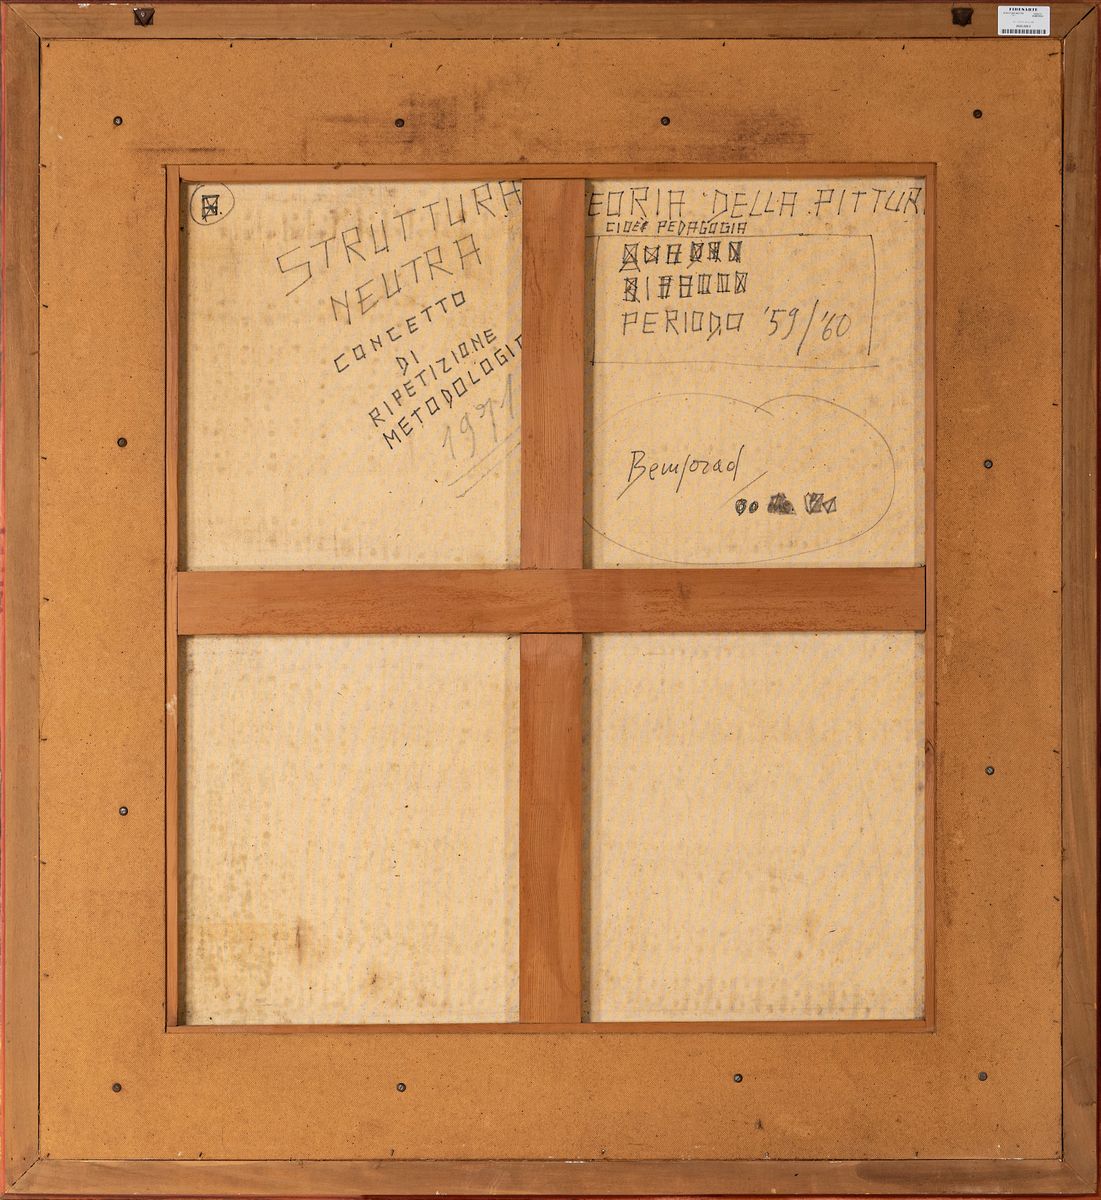 STRUTTURA
NEUTRA
CONCETTO
DI
RIPETIZIONE
METODOLOGIC
1971
EORIA DELLA PITTUR
CIOÈ PEDAGOGIA
PERIODO '59/'60
Bemporad
FIDESARTE